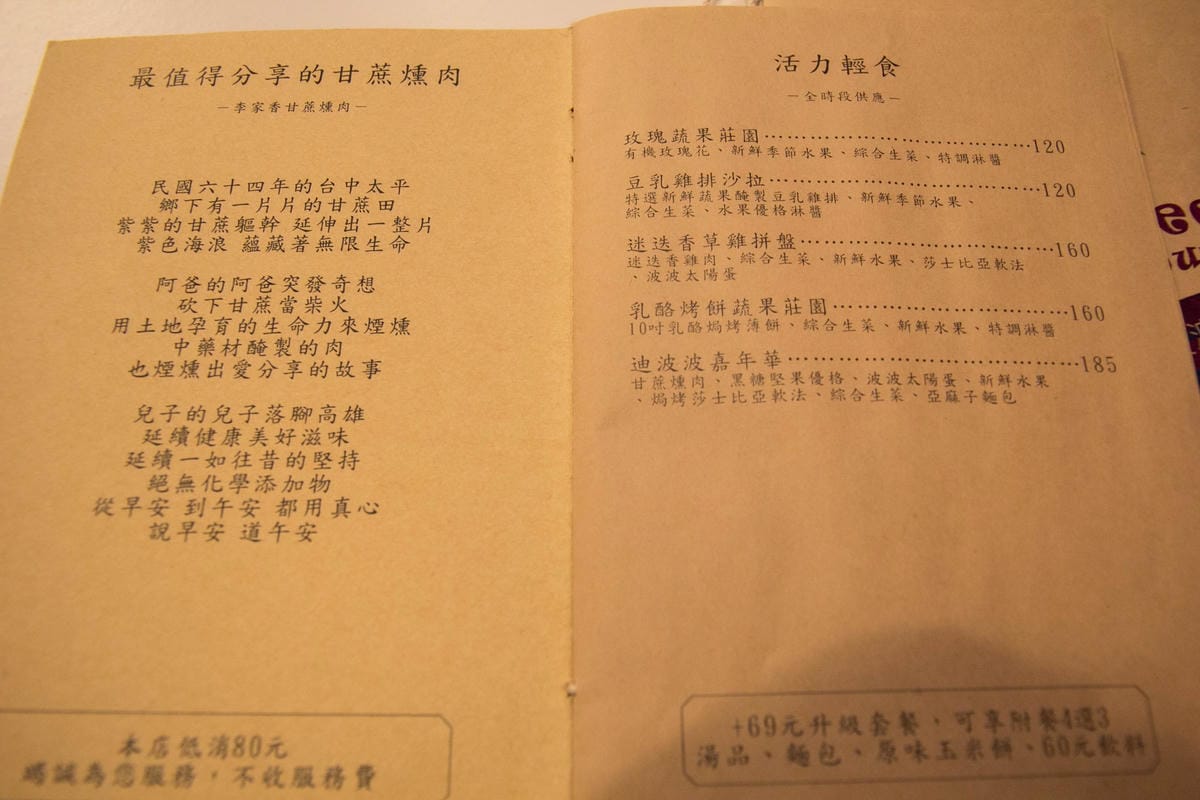 最值得分享的甘蔗燻肉
－李家香甘蔗燻肉－
民國六十四年的台中太平
鄉下有一片片的甘蔗田
紫紫的甘蔗軀幹 延伸出一整片
紫色海浪 蘊藏著無限生命
阿爸的阿爸突發奇想
砍下甘蔗當柴火
用土地孕育的生命力來煙燻
中藥材醃製的肉
也煙燻出愛分享的故事
兒子的兒子落腳高雄
延續健康美好滋味
延續一如往昔的堅持
絕無化學添加物
從早安 到午安 都用真心
說早安 道午安
本店低消80元
竭誠為您服務，不收服務費
活力輕食
－全時段供應－
玫瑰蔬果莊園……………………………120
有機玫瑰花、新鮮季節水果、綜合生菜、特調淋醬
豆乳雞排沙拉……………………………120
特選新鮮蔬果醃製豆乳雞排、新鮮季節水果、
綜合生菜、水果優格淋醬
迷迭香草雞拼盤…………………………160
迷迭香雞肉、綜合生菜、新鮮水果、莎士比亞軟法
、波波太陽蛋
乳酪烤餅蔬果莊園………………………160
10吋乳酪焗烤薄餅、綜合生菜、新鮮水果、特調淋醬
迪波波嘉年華……………………………185
甘蔗燻肉、黑糖堅果優格、波波太陽蛋、新鮮水果
、焗烤莎士比亞軟法、綜合生菜、亞麻子麵包
+69元升級套餐，可享附餐4選3
湯品、麵包、原味玉米餅、60元飲料